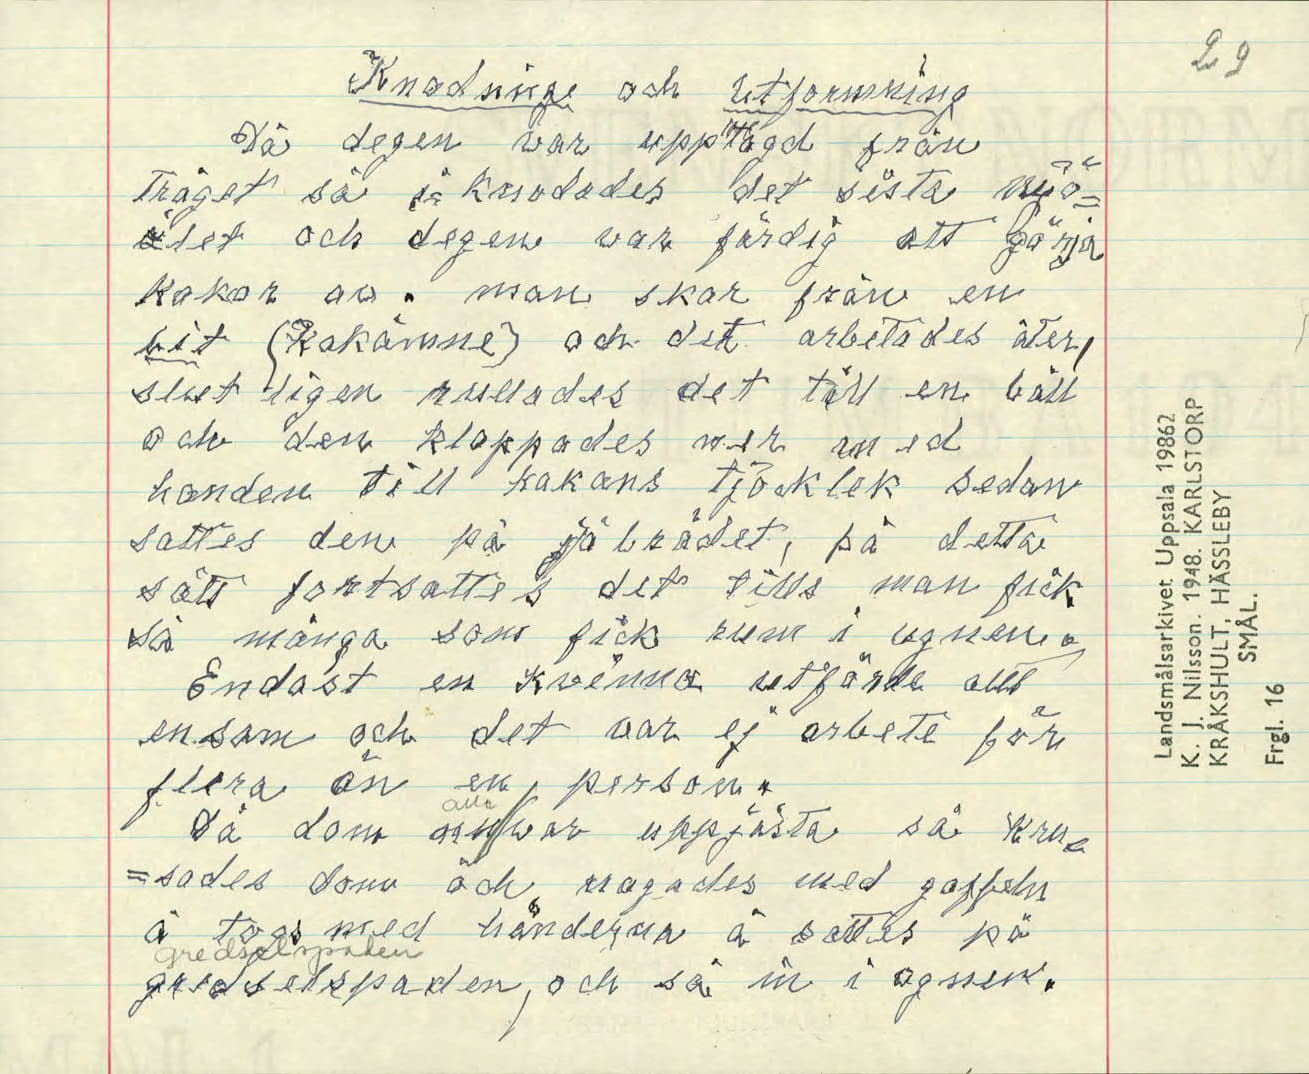 29
Knådning och utformning
Då degen var upptagd från
tråget så iknodades det sista mjö=
ölet och degen var färdig att görja
kakor av. man skar från en
bit (Kakämne) och det arbetades åter,
slutligen rullades det till en båll
och den kloppades ner med
handen till kakans tjocklek sedan
sattes den på jäbrädet, på detta
sätt fortsattes det tills man fick
så många som fick rum i ugnen.
Endast en kvinna utförde allt
ensam och det var ej arbete för
flera än en person.
alla
Då dom var uppjästa så kru=
=sades dom och nagades med gaffeln
å togs med händerna å sattes på
gredselspaden
gredselspaden, och så in i ognen.
Landsmålsarkivet Uppsala 19862
K. J. Nilsson. 1948. KARLSTORP
KRÅKSHULT, HÄSSLEBY
SMÅL.
Frgl. 16